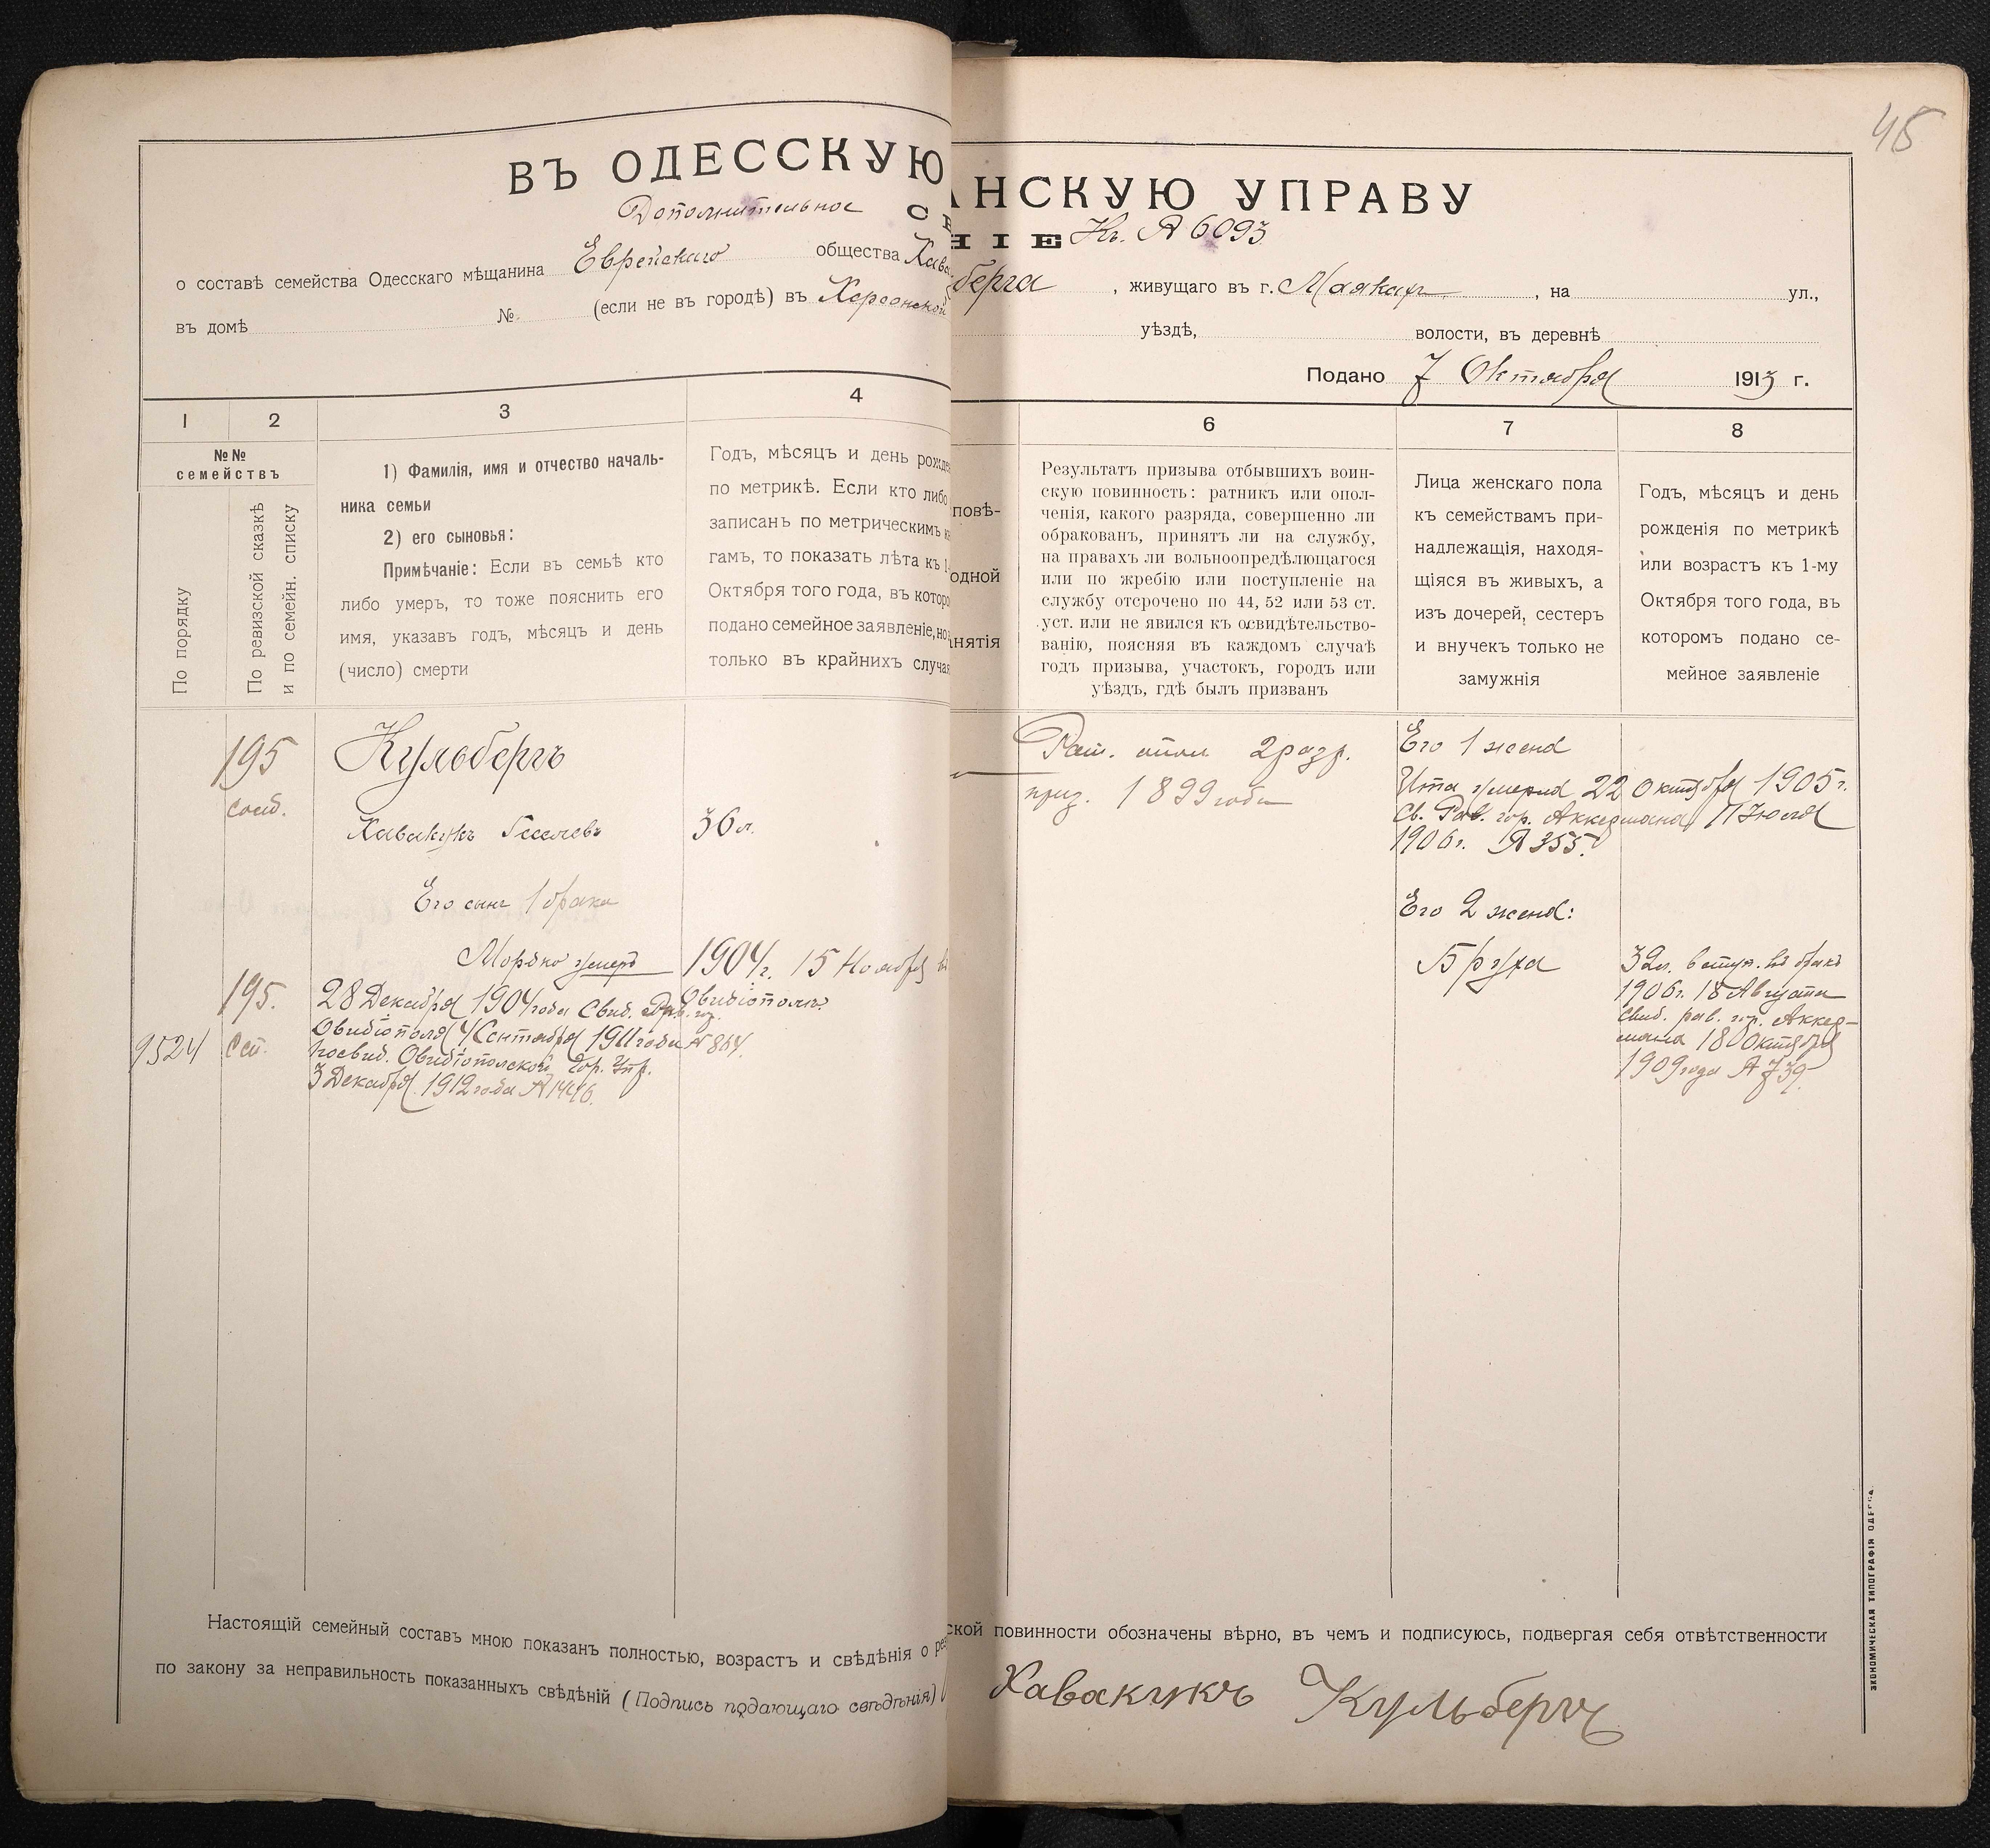 45
ВЪ ОДЕССКУЮ
АНСКУЮ УПРАВУ
Дополнительное
НІЕ Къ. № 6093
о составѣ семейства Одесскаго мѣщанина Еврейскаго общества Хава
берга, живущаго въ г. Маякахъ, на ул.,
въ домѣ № (если не въ городѣ) въ Херсонской
уѣздѣ, волости, въ деревнѣ
Подано 7 Октября 1913 г.
1 2 3 4
6 7 8
№№
семействъ
По порядку
По ревизской сказкѣ
и по семейн. списку
1) Фамилія, имя и отчество началь-
ника семьи
2) его сыновья:
Примѣчаніе: Если въ семьѣ кто
либо умеръ, то тоже пояснить его
имя, указавъ годъ, мѣсяцъ и день
(число) смерти
Годъ, мѣсяцъ и день рожде
по метрикѣ. Если кто либо
записанъ по метрическимъ к
гамъ, то показать лѣта къ 1-
Октября того года, въ которо
подано семейное заявленіе, но
только въ крайнихъ случая
повѣ-
одной
анятія
Результатъ призыва отбывшихъ воин-
скую повинность: ратникъ или опол-
ченія, какого разряда, совершенно ли
обракованъ, принятъ ли на службу,
на правахъ ли вольноопредѣлющагося
или по жребію или поступленіе на
службу отсрочено по 44, 52 или 53 ст.
уст. или не явился къ освидѣтельство-
ванію, поясняя въ каждомъ случаѣ
годъ призыва, участокъ, городъ или
уѣздъ, гдѣ былъ призванъ
Лица женскаго пола
къ семействамъ при-
надлежащія, находя-
щіяся въ живыхъ, а
изъ дочерей, сестеръ
и внучекъ только не
замужнія
Годъ, мѣсяцъ и день
рожденія по метрикѣ
или возрастъ къ 1-му
Октября того года, въ
которомъ подано се-
мейное заявленіе
195
Кульбергъ
Хавакукъ Геселевъ
36 л.
Его сынъ 1 брака
Мордко умеръ
1904 г. 15 Ноября въ
Овидіополѣ.
195.
9524
28 Декабря 1904 года Свид. Рав. гор.
Овидіополя 4 Сентября 1911 года № 864.
Овидіопольской Гор. Упр.
3 Декабря 1912 года № 1446.
Рат. опол 2 разр.
приз. 1899 года
Его 1 жена
Ита умерла 22 октября 1905 г.
Св. Рав. гор. Аккермана 11 Іюля
1906 г. № 355.
Его 2 жена:
Бруха
32 л. вступ. въ бракъ
1906 г. 18 Августа
Свид. рав. гор. Аккер-
мана 18 Октября
1909 года № 739.
Настоящій семейный составъ мною показанъ полностью, возрастъ и свѣдѣнія о ре
ской повинности обозначены вѣрно, въ чемъ и подписуюсь, подвергая себя отвѣтственности
по закону за неправильность показанныхъ свѣдѣній (Подпись подающаго свѣдѣнія)
Хавакукъ Кульбергъ
ЭКОНОМИЧЕСКАЯ ТИПОГРАФІЯ ОДЕССА.